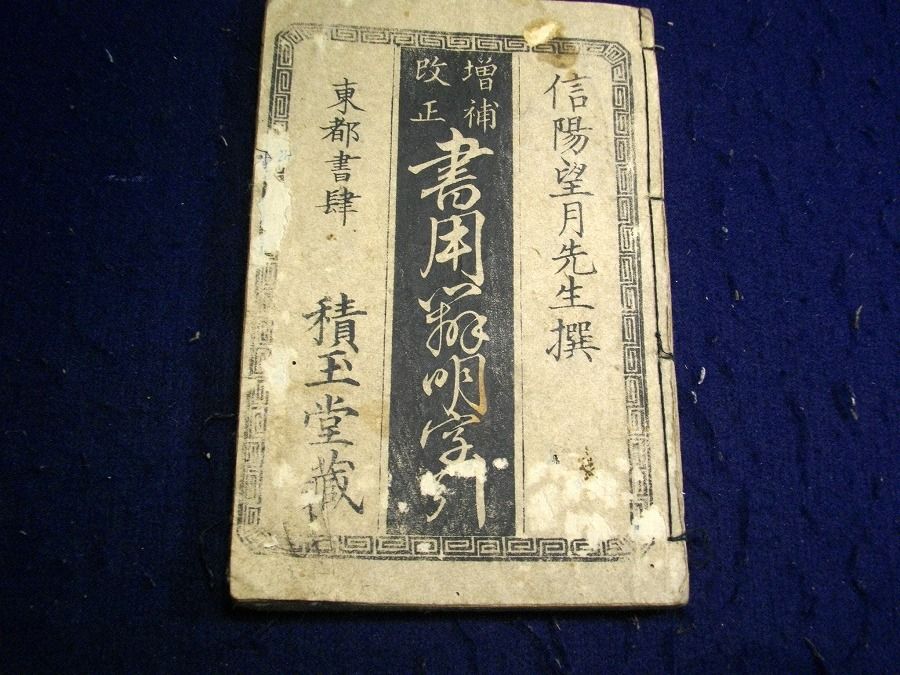 信陽望月先生撰
増補
改正
書用辨明字引
東都書肆
積玉堂藏